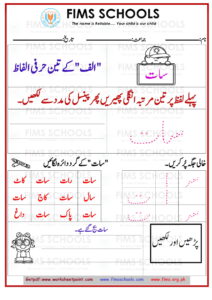 FIMS SCHOOLS
The name is Reliable.... Your child is our child
نام: جماعت: تاریخ:
"الف" کے تین حرفی الفاظ
سات
پہلے لفظ پر تین مرتبہ انگلی پھیریں پھر پینسل کی مدد سے لکھیں۔
خالی جگہ پُر کریں۔
"سات" کے گرد دائرہ لگائیں
سات رات سات کاٹ
سال سات کاج سات
سات پاک سات داغ
سات بج گئے ہے۔
پڑھیں اور لکھیں
Getpdf:www.worksheetpoint.com www.fimsschools.com www.fims.org.pk